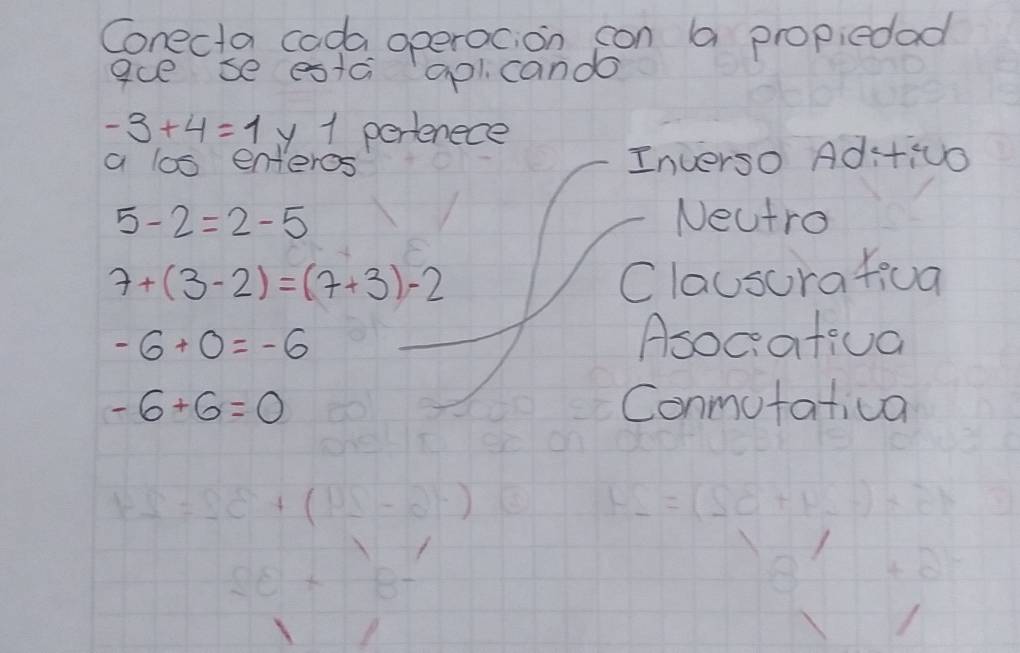 Conecta cada operación con la propiedad
que se está aplicando
-3+4=1 y 1 pertenece
a los enteros
5-2=2-5
7+(3-2)=(7+3)-2
-6+0=-6
-6+6=0
Inverso Aditivo
Neutro
Clausurativa
Asociativa
Conmutativa